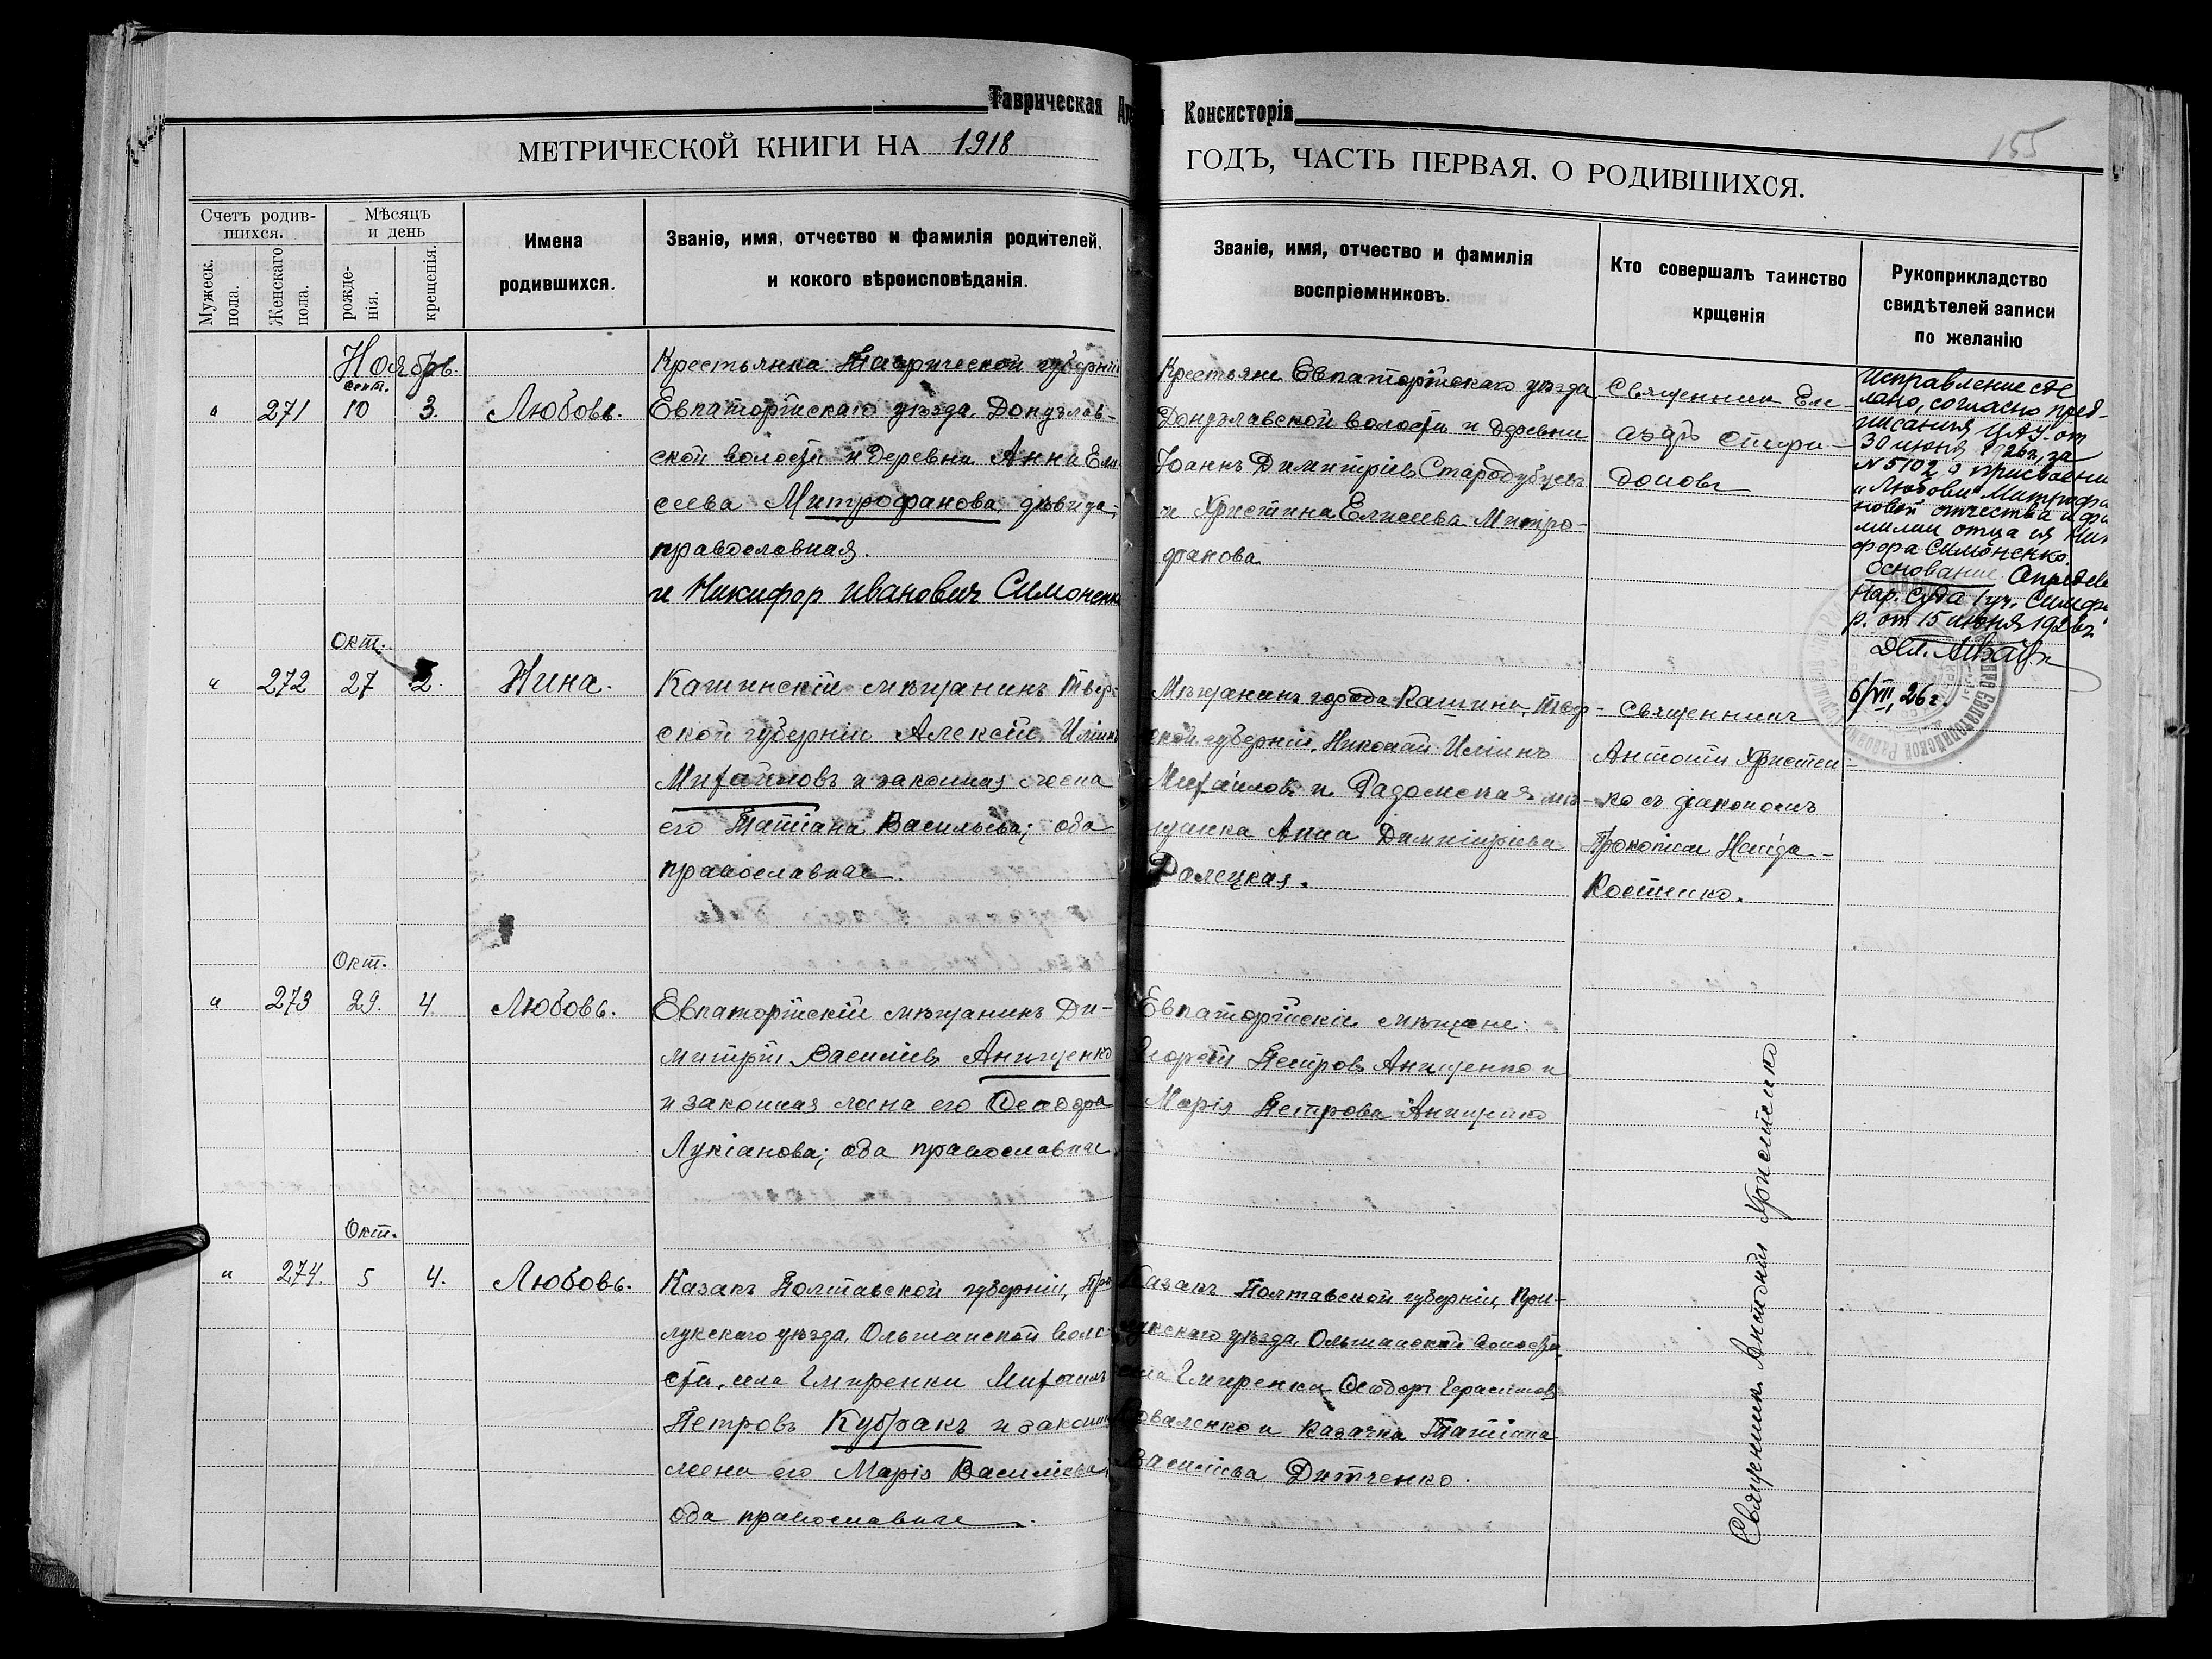 Таврическая
Консисторія
155
МЕТРИЧЕСКОЙ КНИГИ НА 1918
ГОДЪ, ЧАСТЬ ПЕРВАЯ. О РОДИВШИХСЯ.
Счетъ родив-
шихся.
Мужеск.
пола.
Женскаго
пола.
Мѣсяцъ
и день
рожде-
нія.
крещенія.
Имена
родившихся.
Званіе, имя, отчество и фамилія родителей,
и кокого вѣроисповѣданія.
Званіе, имя, отчество и фамилія
воспріемниковъ.
Кто совершалъ таинство
крщенія
Рукоприкладство
свидѣтелей записи
по желанію
Ноябрь.
сент.
" 271 10 3. Любовь.
Крестьянка Таврической губерніи
Евпаторійскаго уѣзда Донузлав-
ской волости и деревни Анна Ели
сеева Митрофанова, дѣвица,
православная.
и Никифор Иванович Симоненко
Крестьяне Евпаторійскаго уѣзда
Донузлавской волости и деревни
Іоаннъ Димитріевъ Стародубцевъ
и Христина Елисеева Митро-
фанова.
Священник Ели-
азаръ Спири-
доновъ
Исправление сде
лано, согласно пред-
писания ЦАУ от
30 июня 1926г, за
N 5102, о присвоении
"Любови" Митрофа
новой отчества и фа
милии отца ея Ник
фора Симоненко.
Основание Определ
Нар. Суда 1 уч. Симф
р. от 15 июня 1926г.
6/VII, 26г.
Окт.
" 272 27 2. Нина.
Кашинскій мѣщанинъ Твер
ской губерніи Алексій Иліинъ
Михайловъ и законная жена
его Татіана Васильева; оба
православные.
Мѣщанинъ города Кашина, Твер-
ской губерніи, Николай Иліинъ
Михайловъ и Радомская мѣ-
щанка Анна Димитріева
Далецкая.
Священникъ
Антоній Христен-
ко съ діакономъ
Прокопіем Найда-
Костенко.
Окт.
" 273 29. 4. Любовь.
Евпаторійскій мѣщанинъ Ди-
митрій Василіевъ Анищенко
и законная жена его Ѳеодора
Лукіанова; оба православные
Евпаторійскіе мѣщане:
Георгій Петровъ Анищенко и
Марія Петрова Анищенко
Окт.
" 274 5 4. Любовь.
Казакъ Полтавской губерніи, При
лукскаго уѣзда, Ольшанской воло-
сти, села Гмиренки Михаилъ
Петровъ Кубракъ и законная
жена его Марія Василіева,
оба православные.
Казакъ Полтавской губерніи, При-
лукскаго уѣзда, Ольшанской волости,
села Гмиренки Ѳеодоръ Герасимовъ
Коваленко и казачка Татіана
Василіева Дитченко.
Священникъ Антоній Христенко